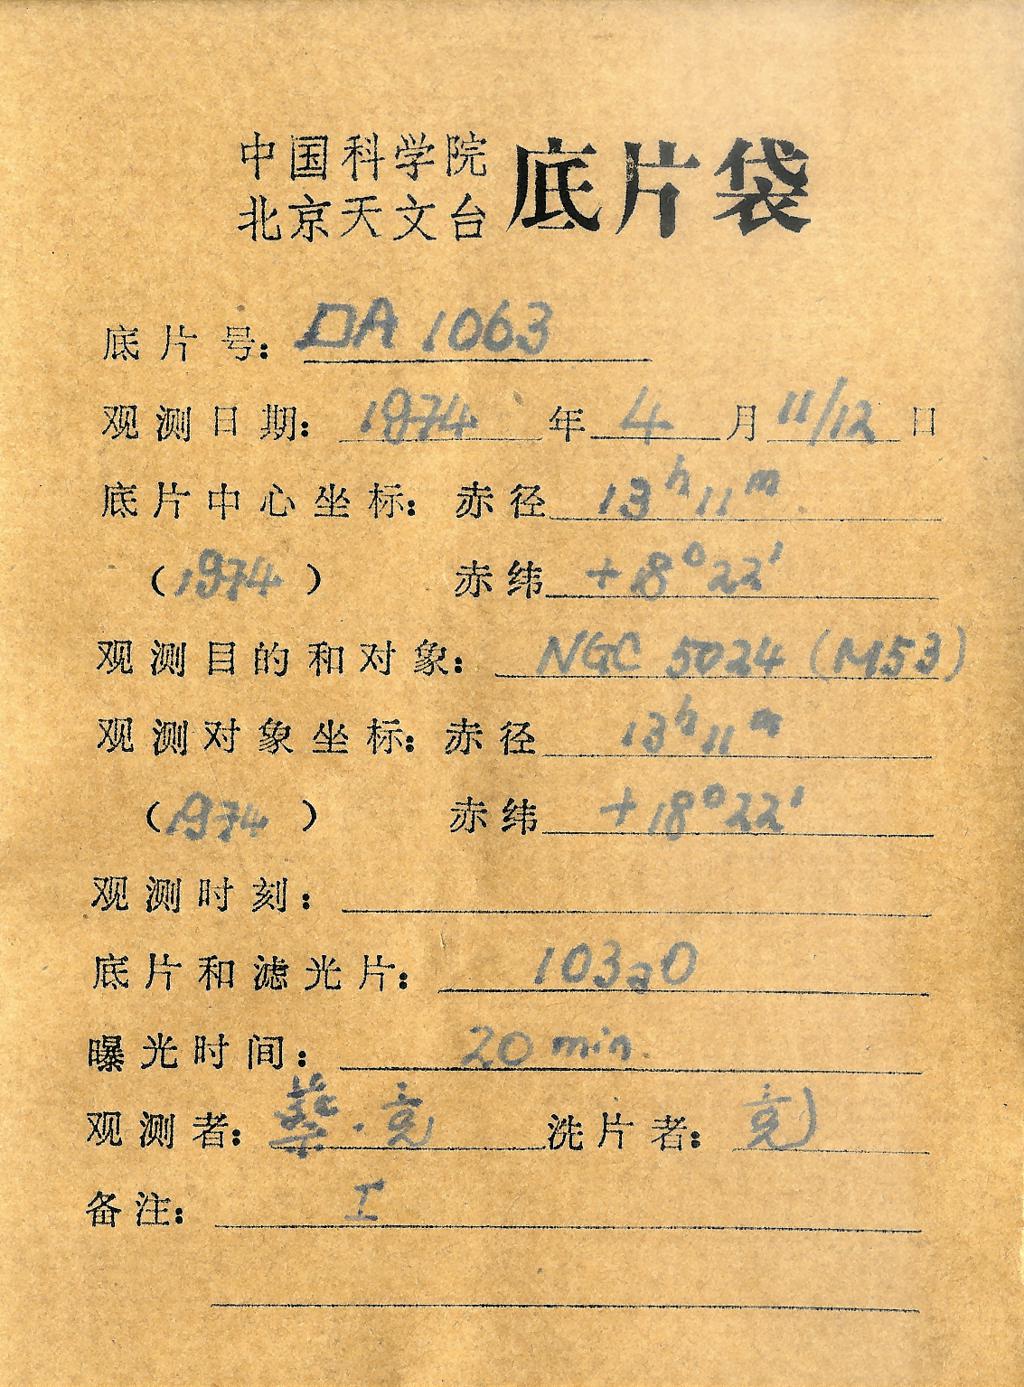 中国科学院
北京天文台 底片袋
底片号: DA 1063
观测日期: 1974 年 4 月 11/12 日
底片中心坐标: 赤径 13ʰ11ᵐ
(1974) 赤纬 +18°22'
观测目的和对象: NGC 5024 (M53)
观测对象坐标: 赤径 13ʰ11ᵐ
(1974) 赤纬 +18°22'
观测时刻:
底片和滤光片: 103aO
曝光时间: 20 min.
观测者: 洗片者:
备注: I